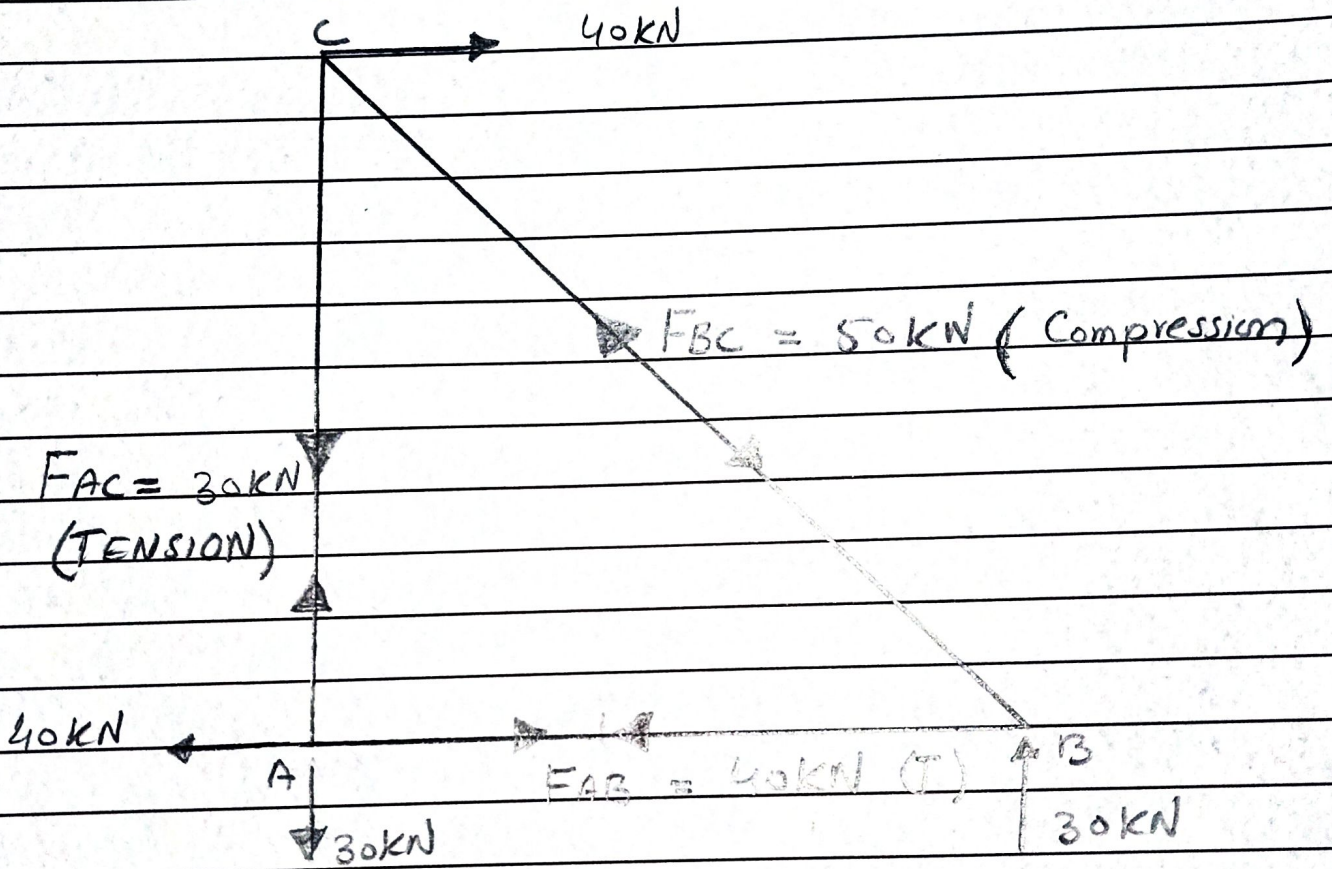 C
40KN
FBC = 50KN (Compression)
FAC= 30KN
(TENSION)
40KN
A
FAB = 40KN (T)
B
30KN
30KN